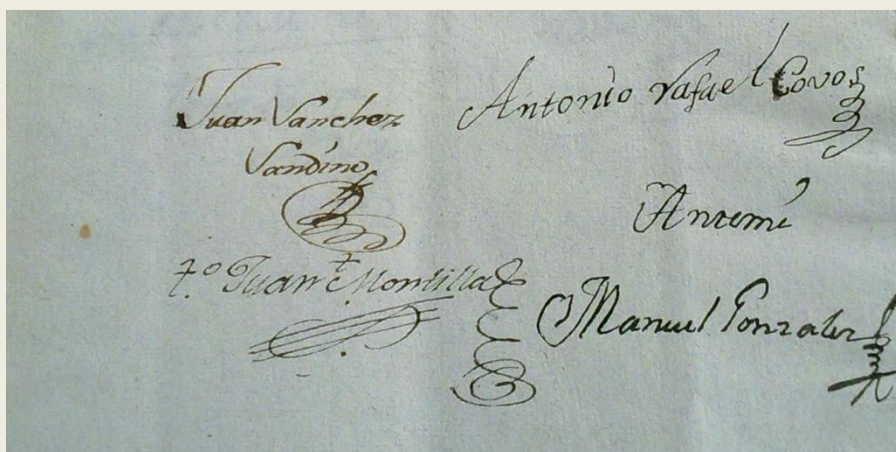 Juan Sanchez
Sandino
Antonio Rafael Covos
Antemi
tº. Juan Montilla
Manuel Gonzalez